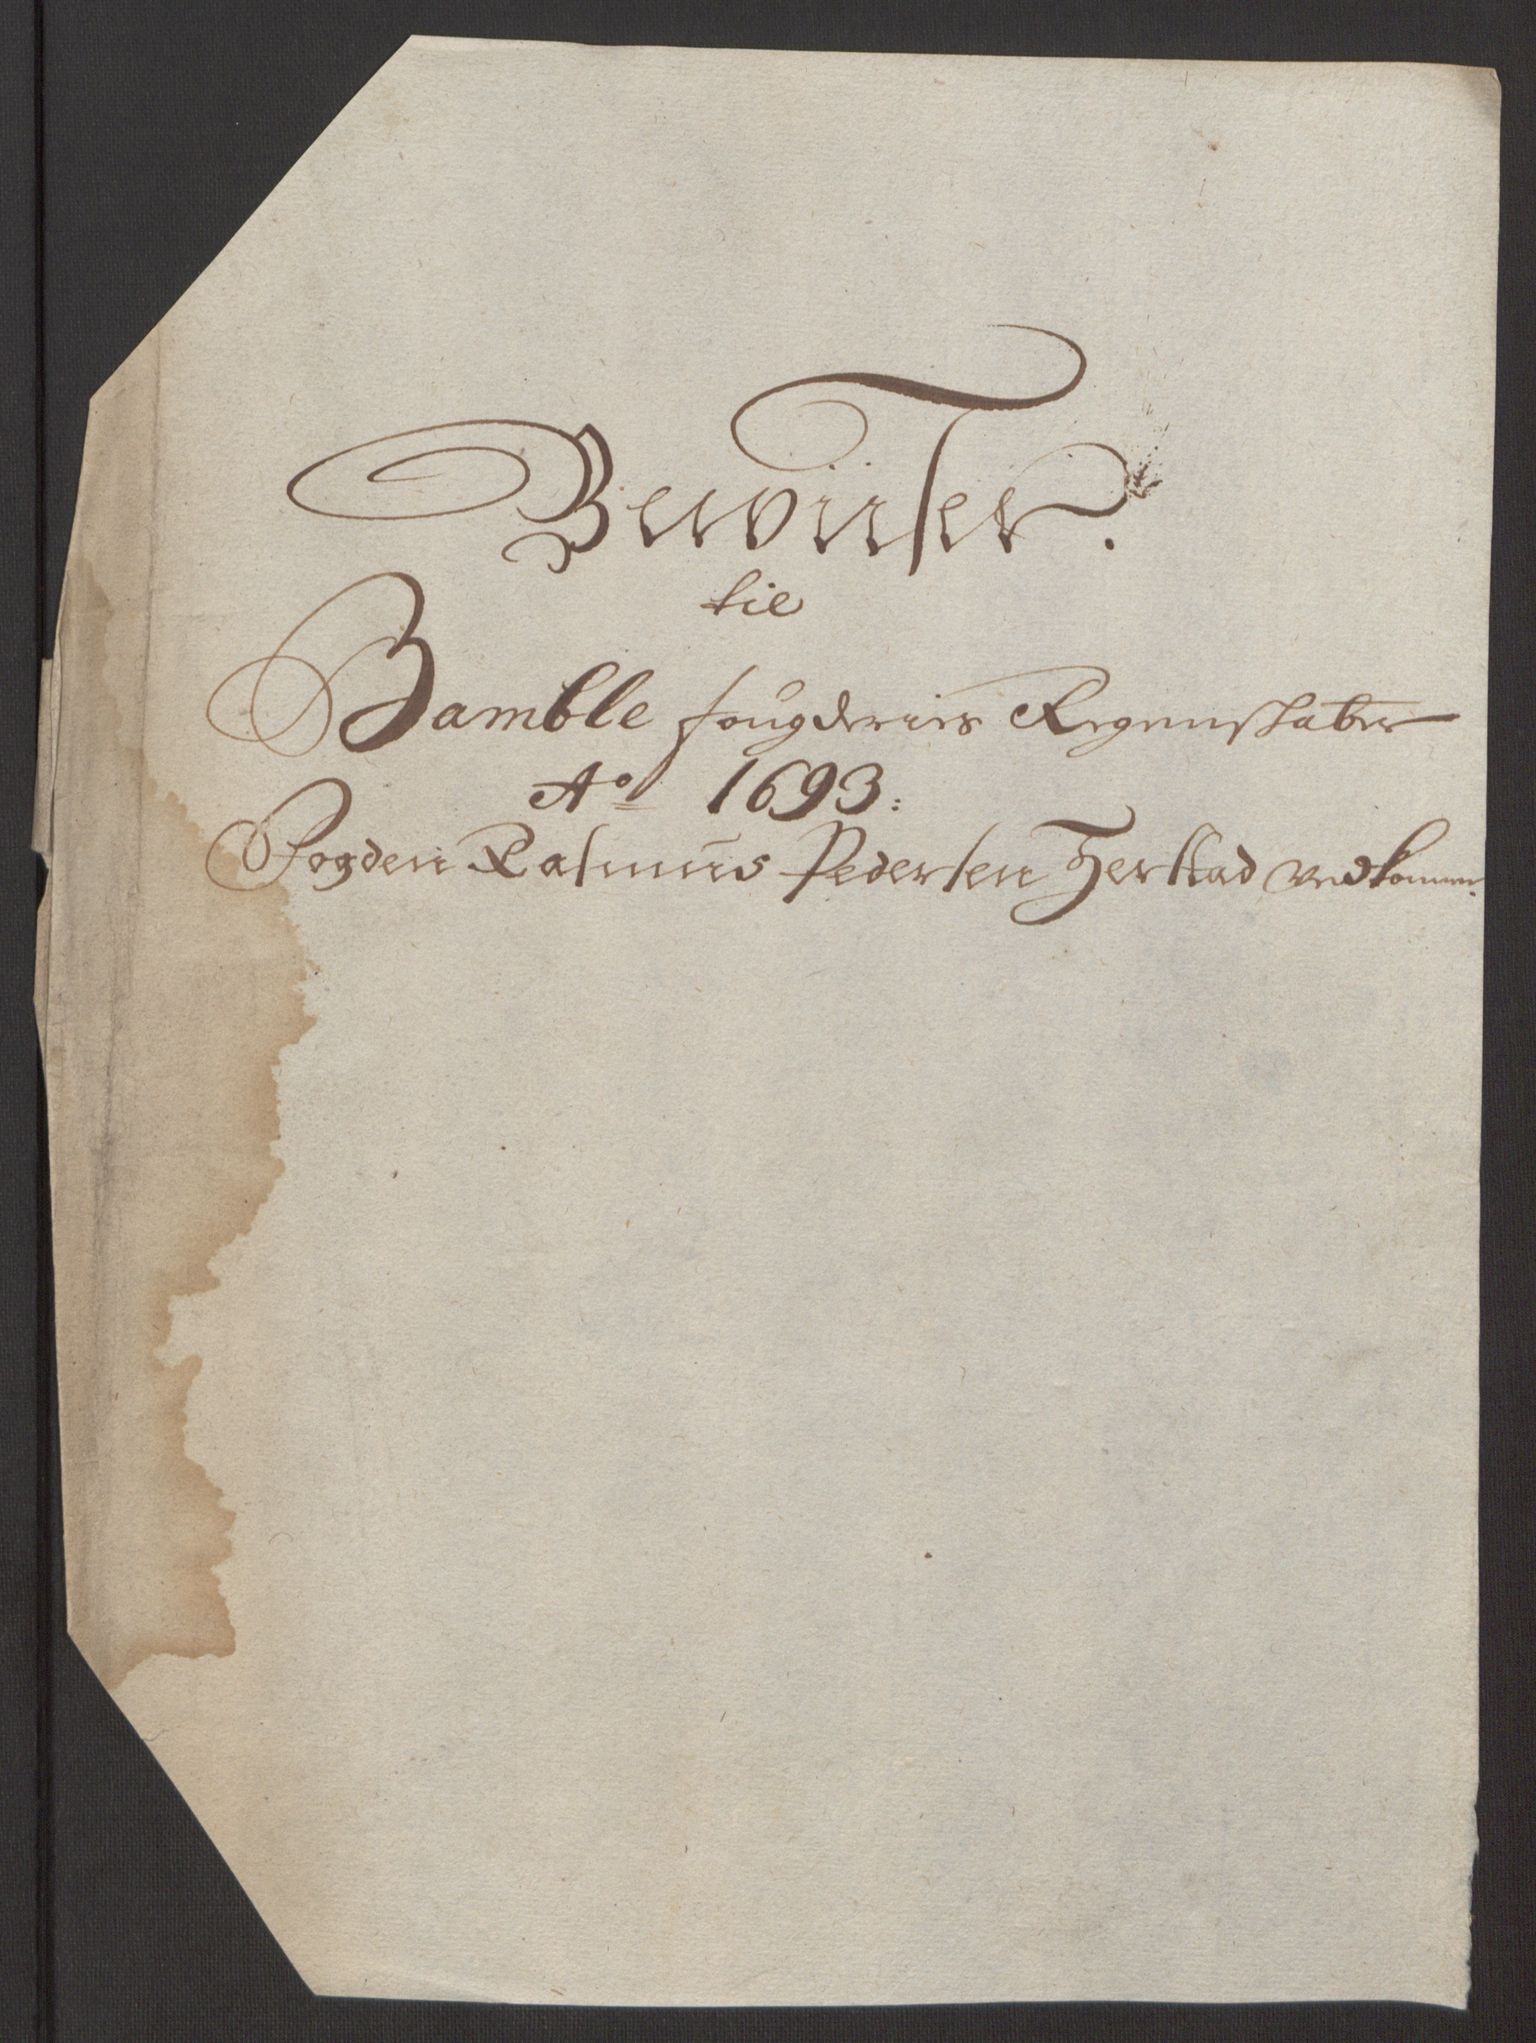 Beviiser.
til
Bamble fougderies Regenskaber
Ao 1693:
Fogden Rasmus Pedersen Herstad vedkomen.